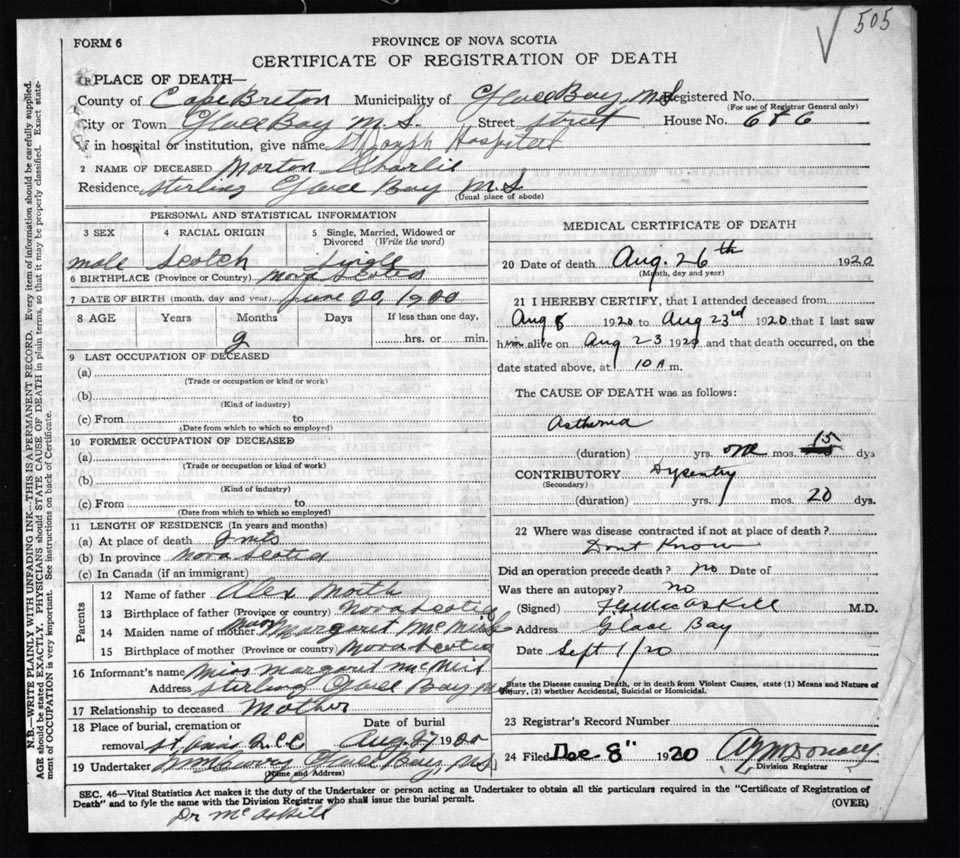 505
FORM 6
PROVINCE OF NOVA SCOTIA
CERTIFICATE OF REGISTRATION OF DEATH
PLACE OF DEATH—
County of Cape Breton Municipality of Glace Bay, N.S Registered No.
(For use of Registrar General only)
City or Town Glace Bay N.S. Street Street House No. 686
If in hospital or institution, give name St Joseph Hospital
2 NAME OF DECEASED Morton Charlie
Residence Sterling Glace Bay N S
(Usual place of abode)
PERSONAL AND STATISTICAL INFORMATION
3 SEX 4 RACIAL ORIGIN 5 Single, Married, Widowed or Divorced (Write the word)
male Scotch Single
6 BIRTHPLACE (Province or Country) Nova Scotia
7 DATE OF BIRTH (month, day and year) June 20, 1900
8 AGE Years Months Days If less than one day,
hrs. or min.
9 LAST OCCUPATION OF DECEASED
(a)
(Trade or occupation or kind or work)
(b)
(Kind of industry)
(c) From to
(Date from which to which so employed)
10 FORMER OCCUPATION OF DECEASED
(a)
(Trade or occupation or kind of work)
(b)
(Kind of industry)
(c) From to
(Date from which to which so employed)
11 LENGTH OF RESIDENCE (In years and months)
(a) At place of death
(b) In province Nova Scotia
(c) In Canada (if an immigrant)
Parents
12 Name of father Alex
13 Birthplace of father (Province or country) Nova Scotia
14 Maiden name of mother Margaret
15 Birthplace of mother (Province or country) Nova Scotia
16 Informant's name Miss Margaret
Address Sterling Glace Bay N
17 Relationship to deceased Mother
18 Place of burial, cremation or removal Date of burial
Aug. 27 1920
19 Undertaker Glace Bay, N.S
(Name and Address)
MEDICAL CERTIFICATE OF DEATH
20 Date of death Aug. 26th 1920
(Month, day and year)
21 I HEREBY CERTIFY, that I attended deceased from
Aug 8 1920 to Aug 23rd 1920 that I last saw
him alive on Aug 23 1920 and that death occurred, on the
date stated above, at 10 A m.
The CAUSE OF DEATH was as follows:
Asthenia
(duration) yrs. one mos. 15 dys
CONTRIBUTORY Dysentry
(Secondary)
(duration) yrs. mos. 20 dys.
22 Where was disease contracted if not at place of death?
Dont Know
Did an operation precede death? no Date of
Was there an autopsy? no
(Signed) McAskill M.D.
Address Glace Bay
Date Sept 1/20
State the Disease causing Death, or in death from Violent Causes, state (1) Means and Nature of
Injury, (2) whether Accidental, Suicidal or Homicidal.
23 Registrar's Record Number
24 Filed Dec 8" 1920
Division Registrar
SEC. 46—Vital Statistics Act makes it the duty of the Undertaker or person acting as Undertaker to obtain all the particulars required in the "Certificate of Registration of
Death" and to fyle the same with the Division Registrar who shall issue the burial permit.
(OVER)
Dr McAskill
N.B.—WRITE PLAINLY WITH UNFADING INK—THIS IS A PERMANENT RECORD. Every item of information should be carefully supplied.
AGE should be stated EXACTLY. PHYSICIANS should STATE CAUSE OF DEATH in plain terms, so that it may be properly classified. Exact statement of OCCUPATION is very important. See instructions on back of Certificate.